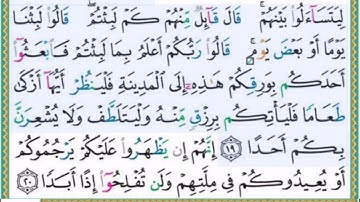 لِيَتَسَآءَلُوا۟ بَيْنَهُمْ ۚ قَالَ قَآئِلٌ مِّنْهُمْ كَمْ لَبِثْتُمْ ۖ قَالُوا۟ لَبِثْنَا
يَوْمًا أَوْ بَعْضَ يَوْمٍ ۚ قَالُوا۟ رَبُّكُمْ أَعْلَمُ بِمَا لَبِثْتُمْ فَٱبْعَثُوٓا۟
أَحَدَكُم بِوَرِقِكُمْ هَٰذِهِۦٓ إِلَى ٱلْمَدِينَةِ فَلْيَنظُرْ أَيُّهَآ أَزْكَىٰ
طَعَامًا فَلْيَأْتِكُم بِرِزْقٍ مِّنْهُ وَلْيَتَلَطَّفْ وَلَا يُشْعِرَنَّ
بِكُمْ أَحَدًا ۝١٩ إِنَّهُمْ إِن يَظْهَرُوا۟ عَلَيْكُمْ يَرْجُمُوكُمْ
أَوْ يُعِيدُوكُمْ فِى مِلَّتِهِمْ وَلَن تُفْلِحُوٓا۟ إِذًا أَبَدًا ۝٢٠